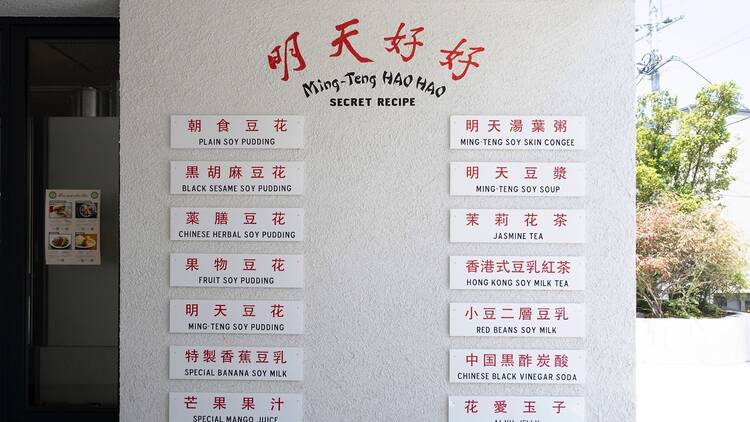 明天好好
Ming-Teng HAO HAO
SECRET RECIPE
朝食豆花
PLAIN SOY PUDDING
黒胡麻豆花
BLACK SESAME SOY PUDDING
薬膳豆花
CHINESE HERBAL SOY PUDDING
果物豆花
FRUIT SOY PUDDING
明天豆花
MING-TENG SOY PUDDING
特製香蕉豆乳
SPECIAL BANANA SOY MILK
芒果果汁
SPECIAL MANGO JUICE
明天湯葉粥
MING-TENG SOY SKIN CONGEE
明天豆漿
MING-TENG SOY SOUP
茉莉花茶
JASMINE TEA
香港式豆乳紅茶
HONG KONG SOY MILK TEA
小豆二層豆乳
RED BEANS SOY MILK
中国黒酢炭酸
CHINESE BLACK VINEGAR SODA
花愛玉子